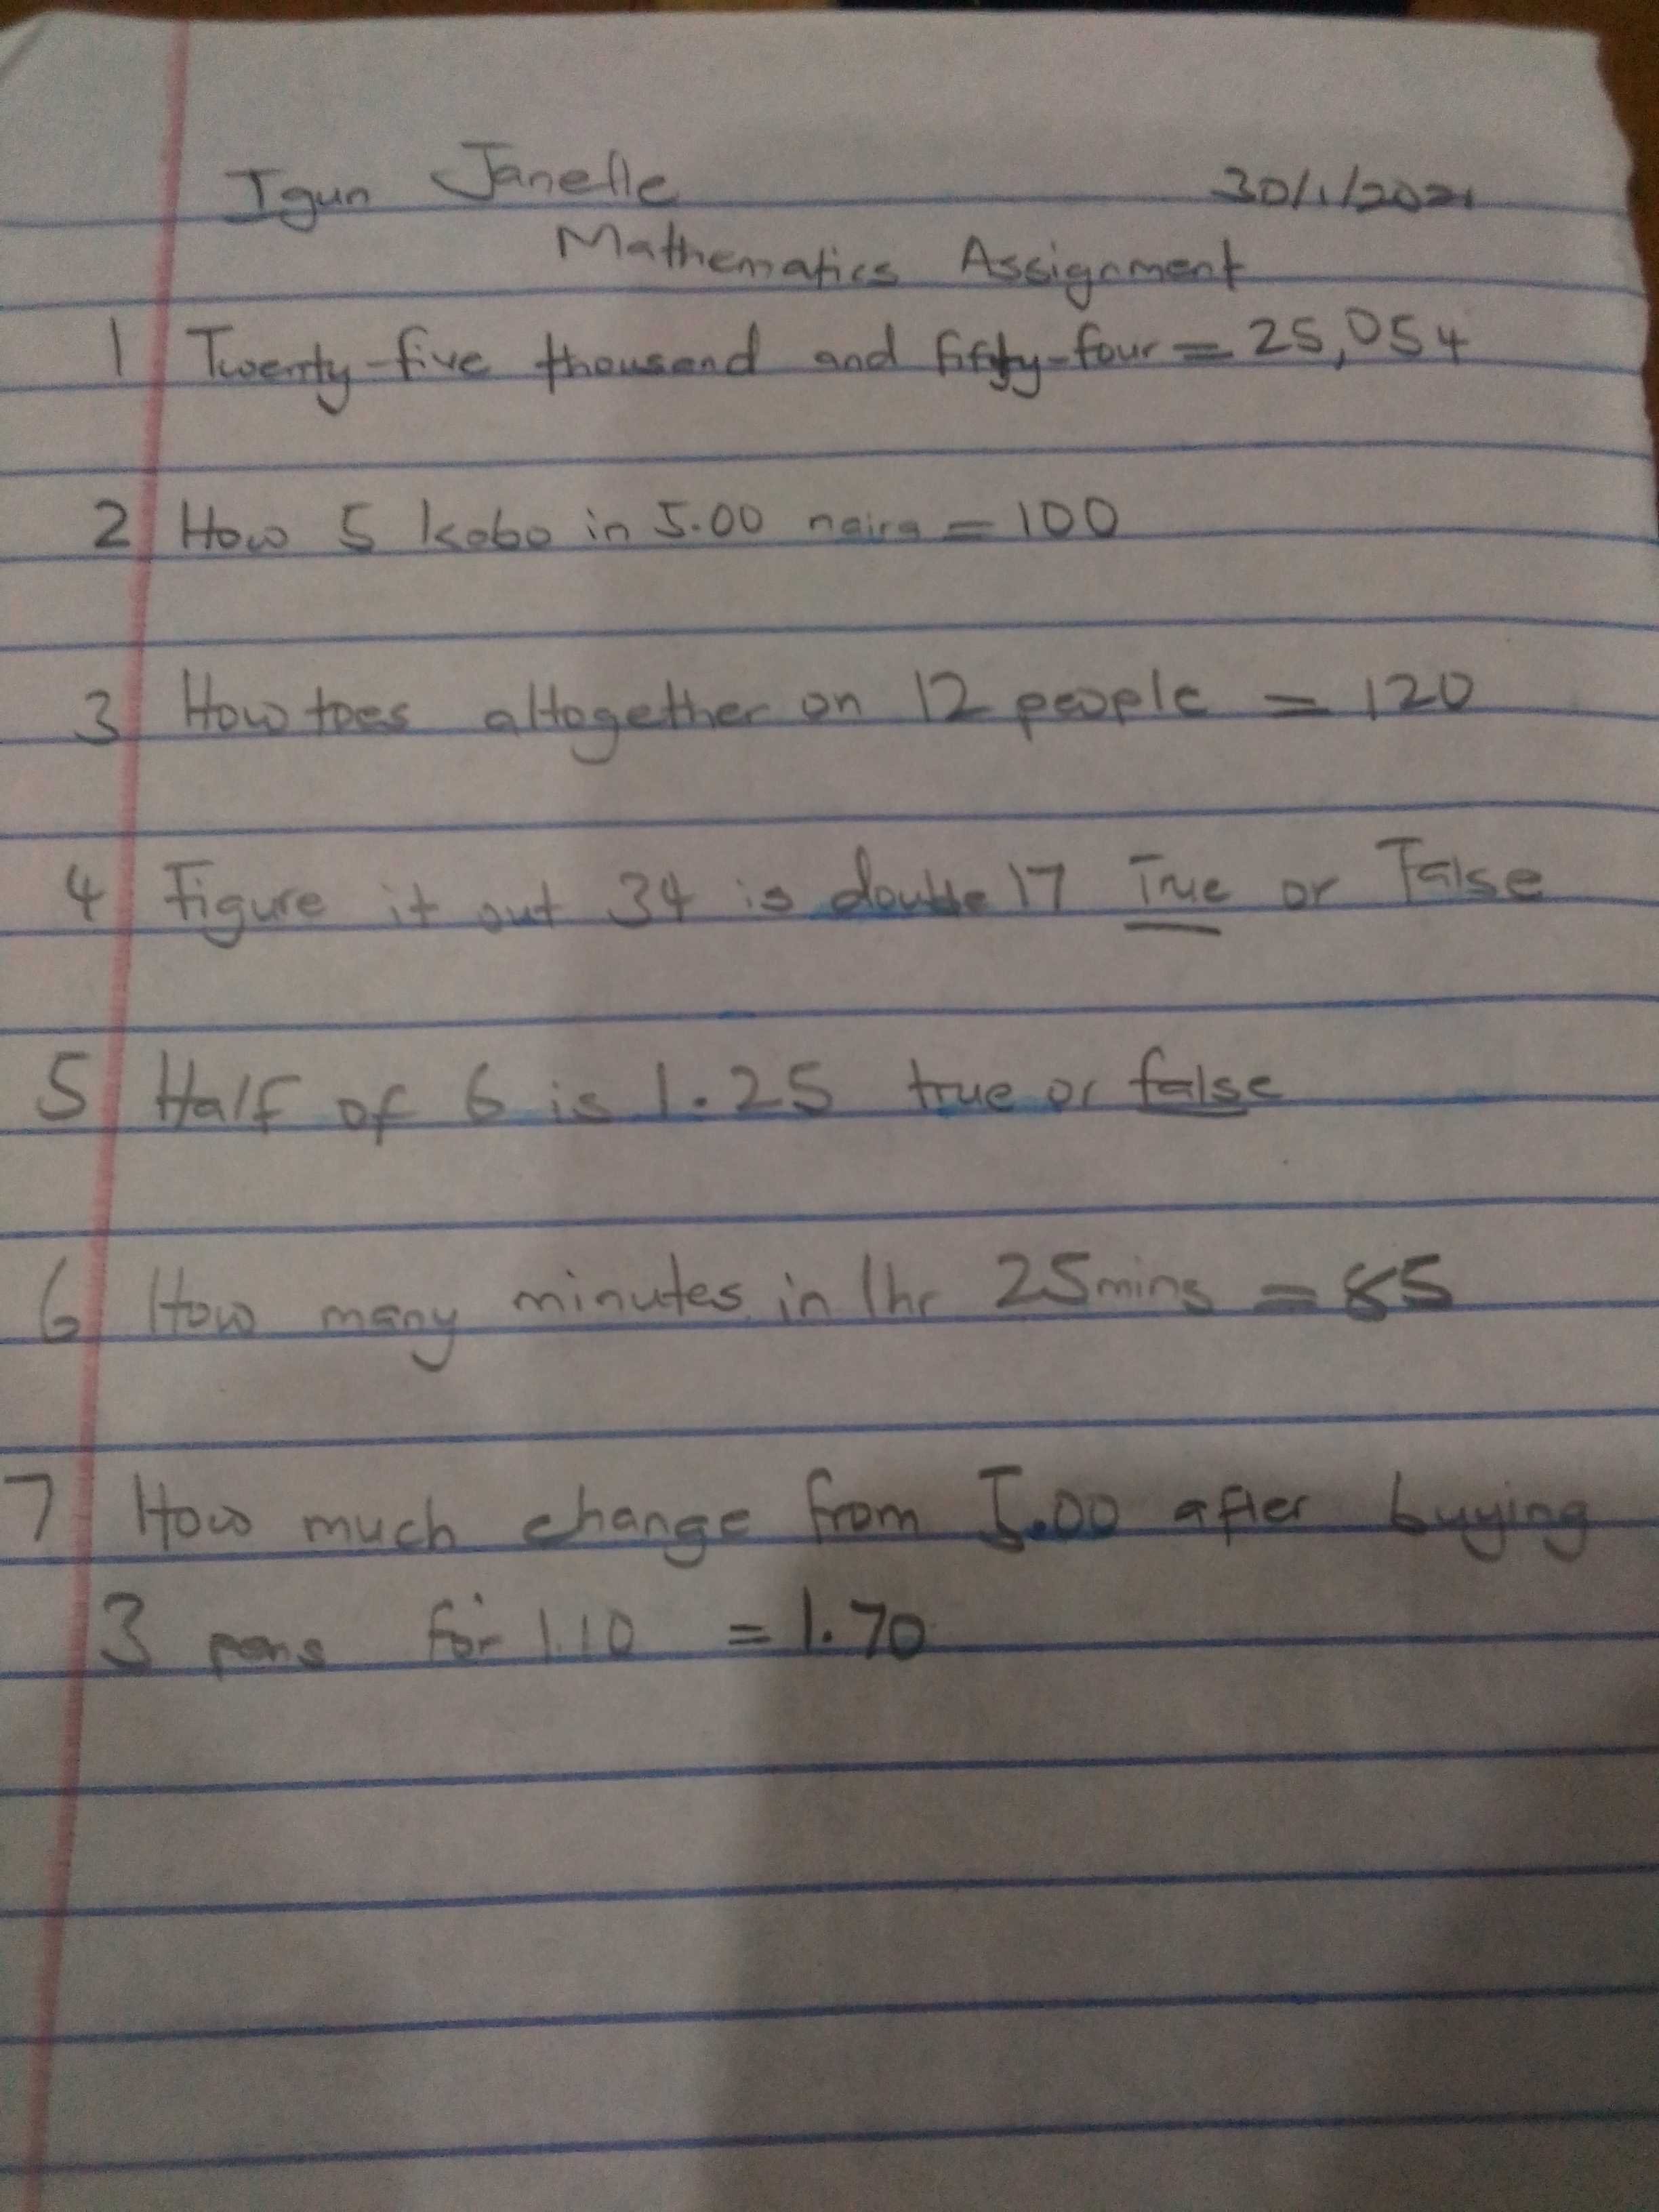 Igun Janelle 30/1/2021
Mathematics Assignment
1 Twenty-five thousand and fifty-four = 25,054
2 How 5 kobo in 5.00 naira = 100
3 How toes altogether on 12 people = 120
4 Figure it out 34 is double 17 True or False
5 Half of 6 is 1.25 true or false
6 How many minutes in 1hr 25mins = 85
7 How much change from 5.00 after buying
3 pens for 1.10 = 1.70